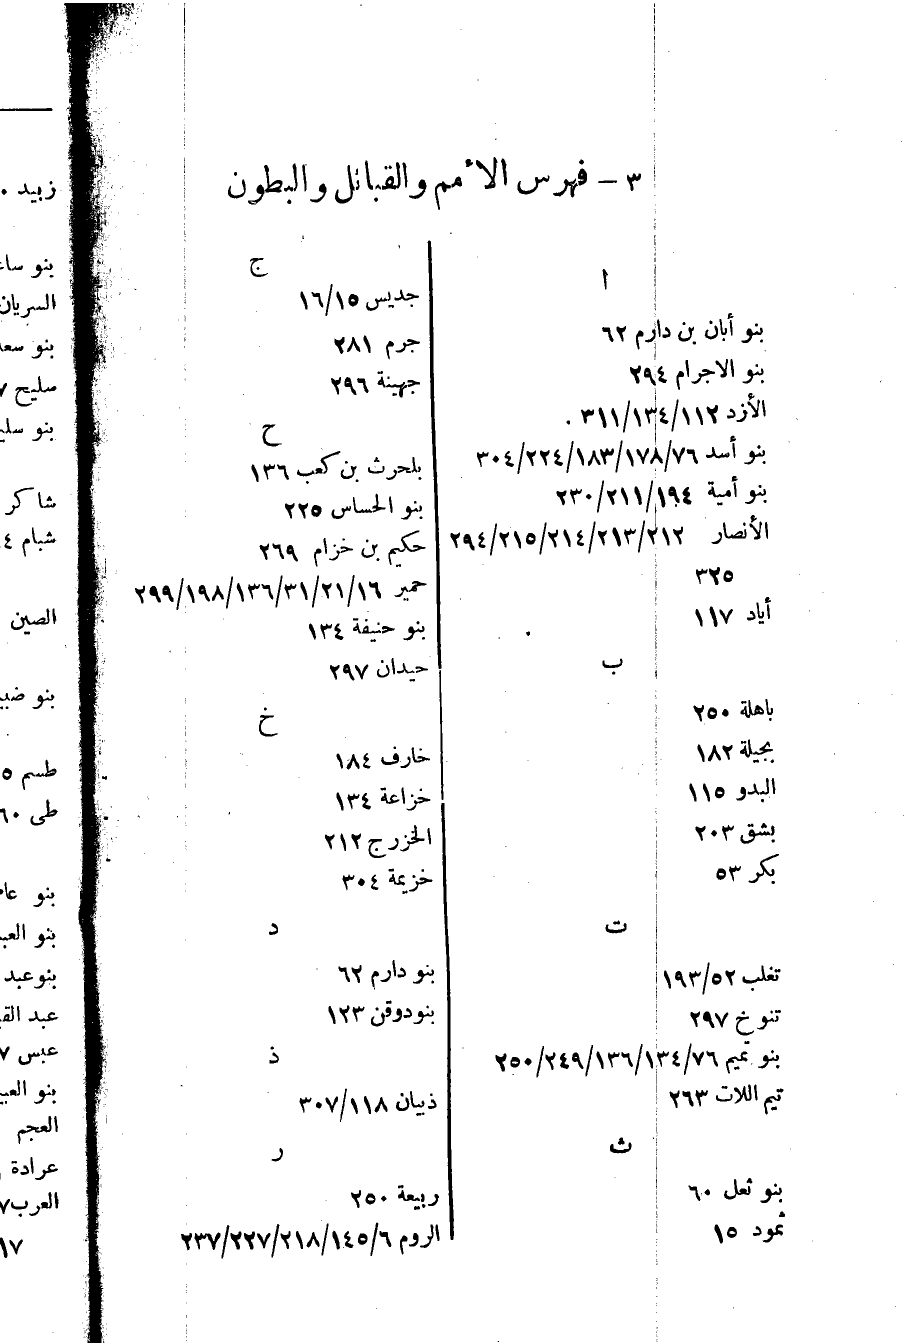 ٣ – فهرس الأمم والقبائل والبطون
ا
بنو أبان بن دارم ٦٢
بنو الاجرام ٢٩٤
الأزد ١١٢/١٣٤/٣١١ .
بنو أسد ٧٦/١٧٨/١٨٣/٢٢٤/٣٠٤
بنو أمية ١٩٤/٢١١/٢٣٠
الأنصار ٢١٢/٢١٣/٢١٤/٢١٥/٢٩٤
٣٢٥
أياد ١١٧
ب
باهلة ٢٥٠
بجيلة ١٨٢
البدو ١١٥
بشق ٢٠٣
بكر ٥٣
ت
تغلب ٥٢/١٩٣
تنوخ ٢٩٧
بنو تميم ٧٦/١٣٤/١٣٦/٢٤٩/٢٥٠
تيم اللات ٢٦٣
ث
بنو ثعل ٦٠
ثمود ١٥
ج
جديس ١٥/١٦
جرم ٢٨١
جهينة ٢٩٦
ح
بلحرث بن كعب ١٣٦
بنو الحساس ٢٢٥
حكيم بن خزام ٢٦٩
حمير ١٦/٢١/٣١/١٣٦/١٩٨/٢٩٩
بنو حنيفة ١٣٤
حيدان ٢٩٧
خ
خارف ١٨٤
خزاعة ١٣٤
الخزرج ٢١٢
خزيمة ٣٠٤
د
بنو دارم ٦٢
بنودوقن ١٢٣
ذ
ذبيان ١١٨/٣٠٧
ر
ربيعة ٢٥٠
الروم ٦/١٤٥/٢١٨/٢٢٧/٢٣٧
زبيد
بنو
السريان
بنو
سليح
بنو
شاكر
شبام
الصين
بنو
طسم
طى
بنو
بنو
بنوعبد
عبد
عبس
بنو
العجم
عرادة
العرب